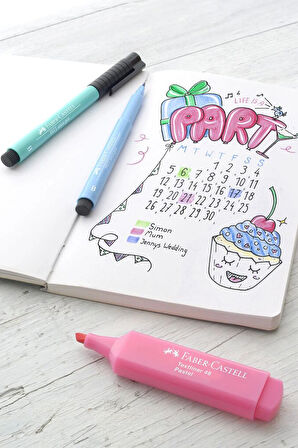 LIFE IS A
PARTY
M T W T F S S
1 2 3 4
5 6 7 8 9 10 11
12 13 14 15 16 17 18
19 20 21 22 23 24 25
26 27 28 29 30
Simon
Mum
Jennys Wedding
FABER-CASTELL
FABER-CASTELL
FABER-CASTELL
Textliner 46
Pastel